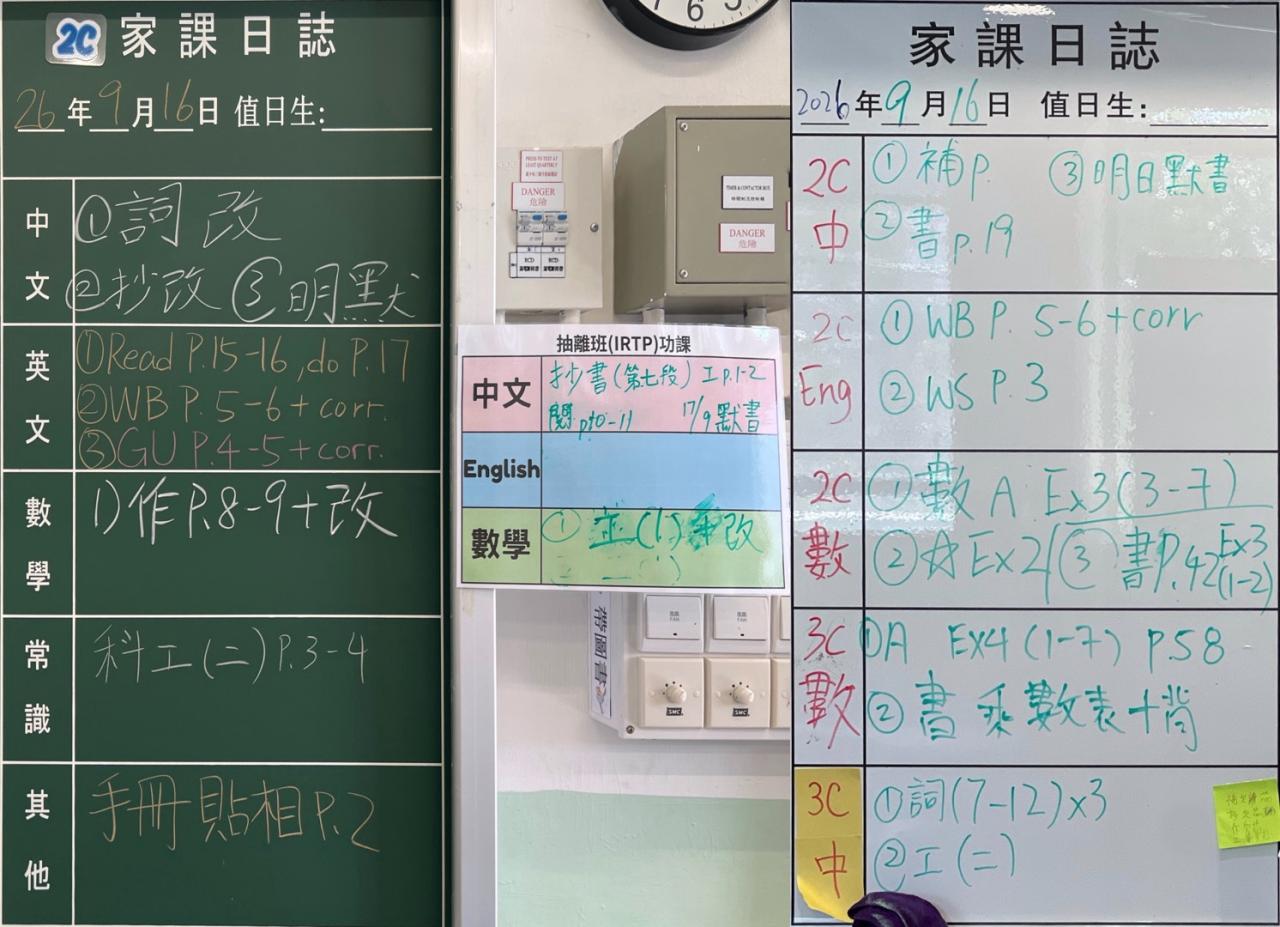 2C 家課日誌
26年9月16日 值日生:
中文
①詞改
②抄改 ③明默
英文
①Read P.15-16, do P.17
②WB P. 5-6 + corr.
③GU P.4-5 + corr.
數學
1)作P.8-9+改
常識
科工(二)P.3-4
其他
手冊貼相P.2
6
PRESS TO TEST AT LEAST QUARTERLY
DANGER
危險
RCD
RCD
TIMER & CONTACTOR BOX
DANGER
危險
抽離班(IRTP)功課
中文
抄書(第七段) 工p.1-2
閱 p10-11 17/9默書
English
數學
① 改
帶圖書
FAN
SMC
SMC
家課日誌
2026年9月16日 值日生:
2C 中
①補P. ③明日默書
②書p.19
2C Eng
①WB P. 5-6 + corr
②WS P.3
2C 數
①數A Ex3(3-7)
②☆Ex2 ③書P.42 Ex3 (1-2)
3C 數
①A Ex4 (1-7) P.58
②書 乘數表+背
3C 中
①詞(7-12)x3
②工(二)